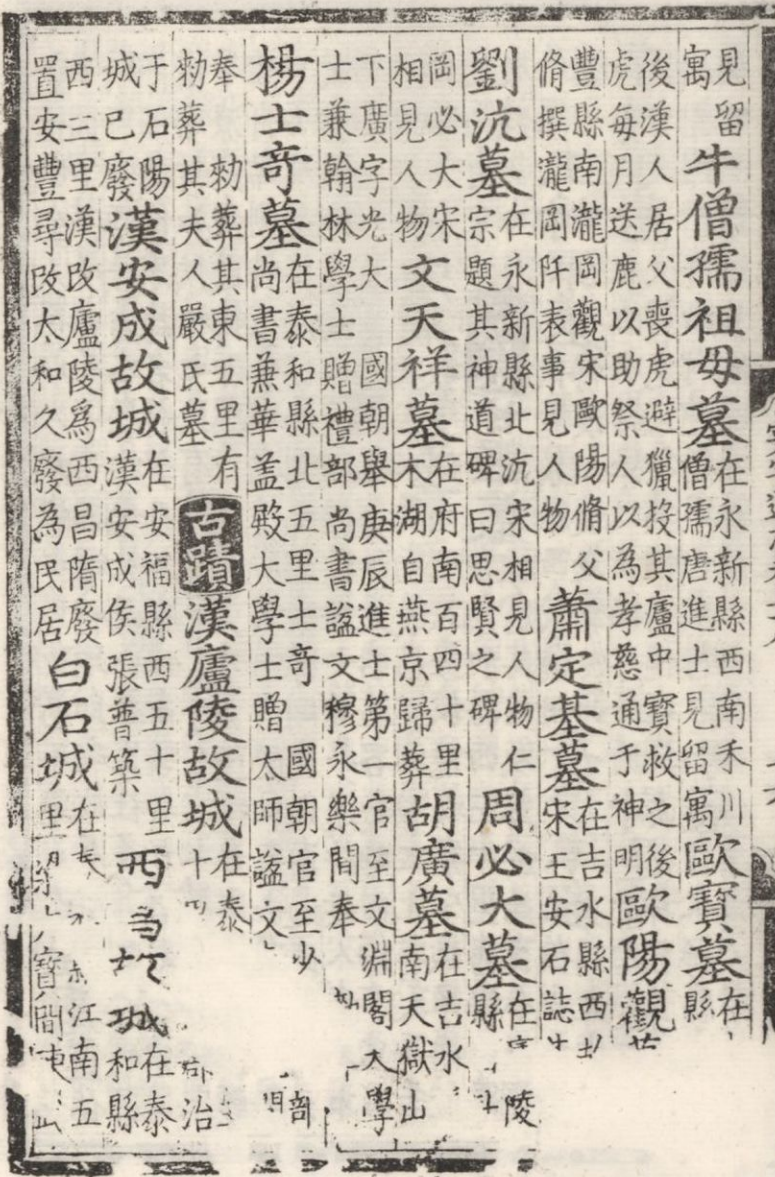 見留寓牛僧孺祖毋墓在永新縣西南禾川僧孺唐進士見留寓歐寶墓在縣
後漢人居父喪虎避獵投其廬中寶救之後虎每月送鹿以助祭人以為孝慈通于神明歐陽觀
豐縣南瀧岡觀宋歐陽脩父脩撰瀧岡阡表事見人物蕭定基墓在吉水縣西宋王安石誌
劉沆墓在永新縣北沆宋相見人物仁宗題其神道碑曰思賢之碑周必大墓在陵縣
岡必大宋相見人物文天祥墓在府南百四十里木湖自燕京歸葬胡廣墓在吉水南天獄山
下廣字光大 國朝舉庚辰進士第一官至文淵閣大學士兼翰林學士贈禮部尚書謚文穆永樂間奉
楊士奇墓在泰和縣北五里士奇 國朝官至少尚書兼華盖殿大學士贈太師謚文
奉 勑葬其東五里有勑葬其夫人嚴氏墓古蹟漢廬陵故城在泰十治
于石陽城已廢漢安成故城在安福縣西五十里漢安成侯張普築西故城在泰和縣
西三里漢改廬陵爲西昌隋廢置安豐尋改太和久廢為民居白石城在江南五里寶間